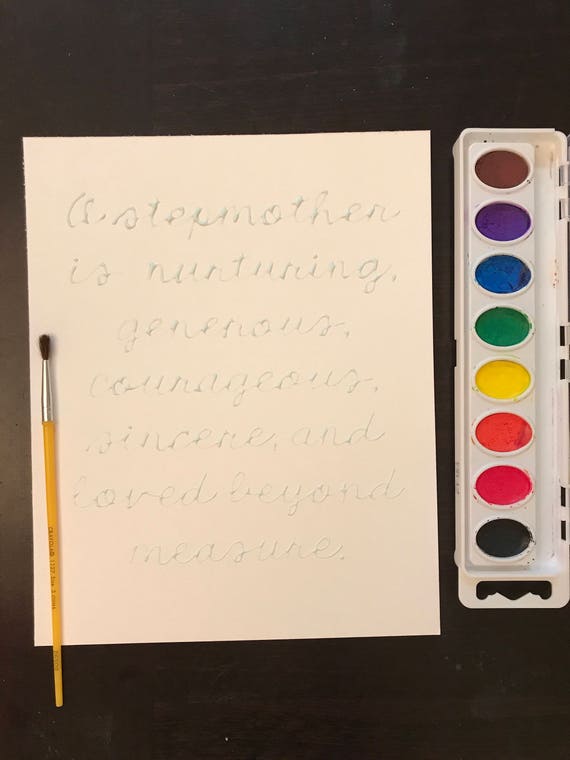 A stepmother
is nurturing,
generous,
courageous,
sincere, and
loved beyond
measure.
CRAYOLA